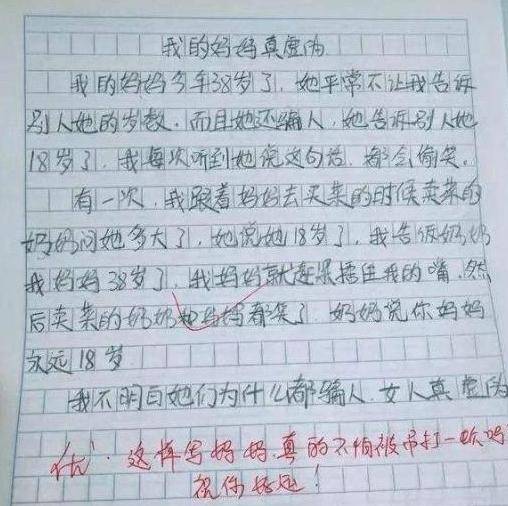 我的妈妈真虚伪
我的妈妈今年38岁了，她平常不让我告诉
别人她的岁数，而且她还骗人，她告诉别人她
18岁了，我每次听到她说这句话，都会偷笑。
有一次，我跟着妈妈去买菜的时候卖菜的
奶奶问她多大了，她说她18岁了，我告诉奶奶
我妈妈38岁了，我妈妈就赶紧捂住我的嘴，然
后卖菜的奶奶和妈妈都笑了，奶奶说你妈妈
永远18岁
我不明白她们为什么都骗人，女人真虚伪
优！这样写妈妈真的不怕被吊打一顿吗
祝你好运！